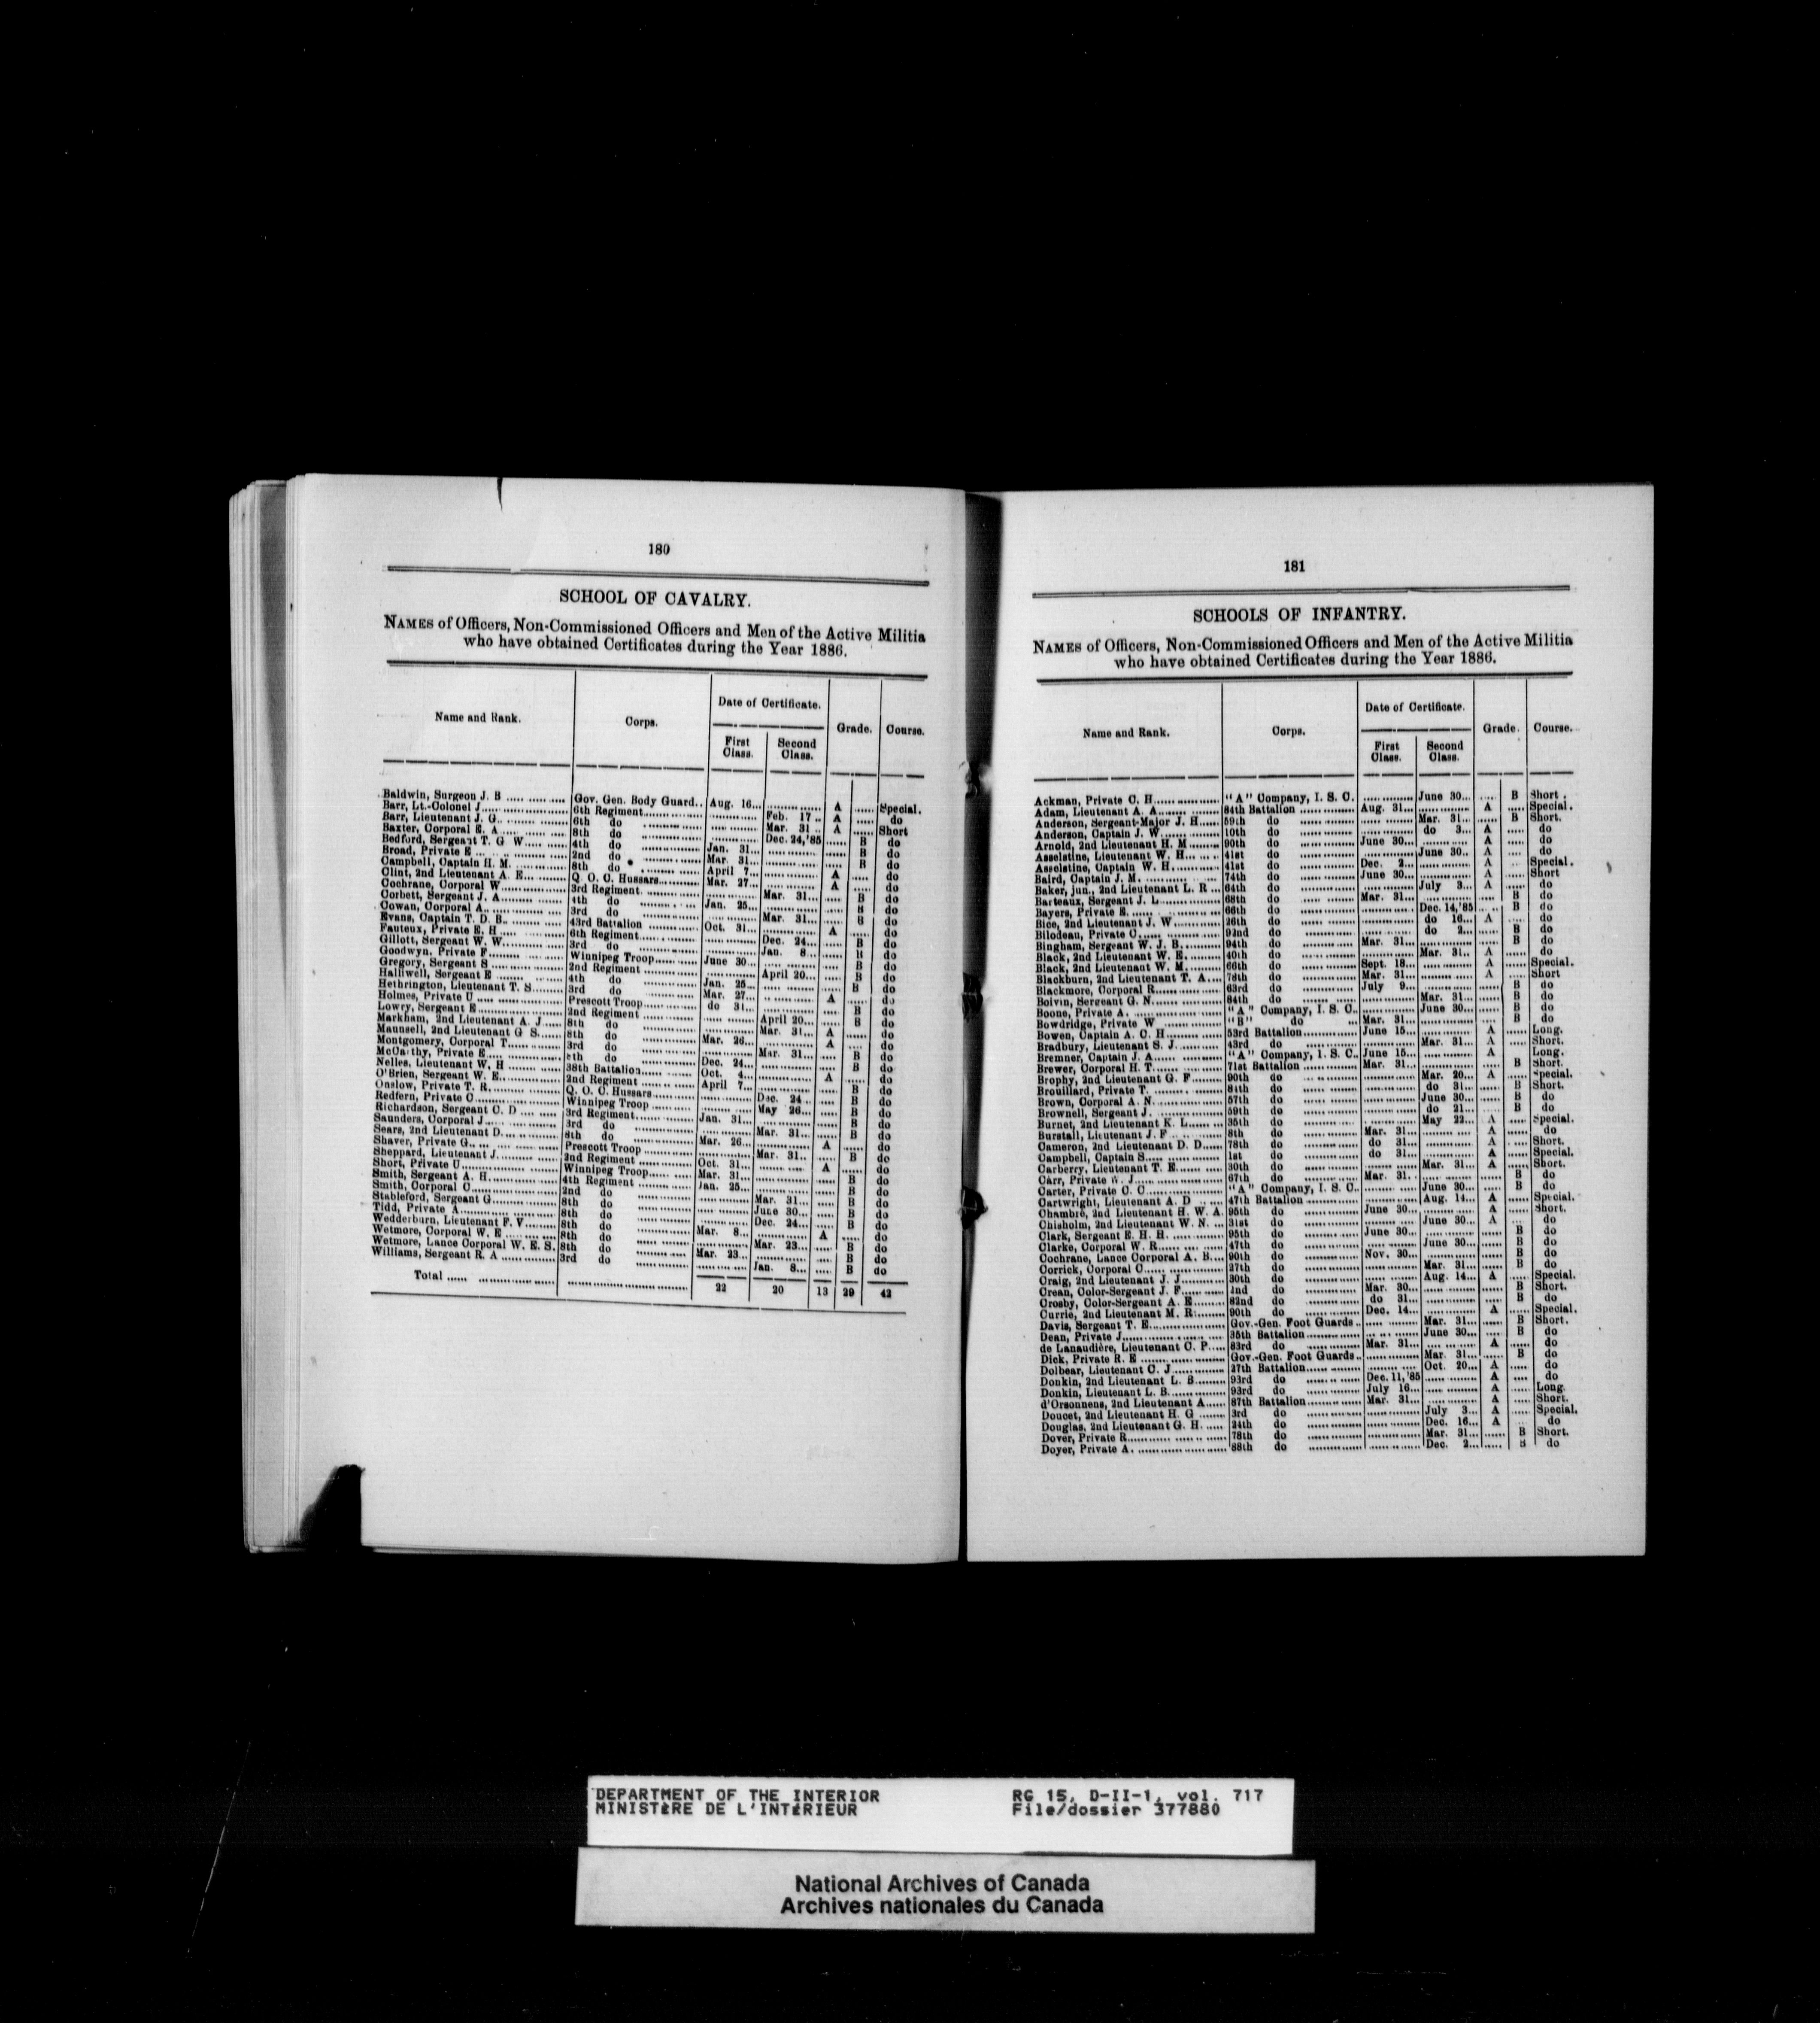 180
SCHOOL OF CAVALRY.
NAMES of Officers, Non-Commissioned Officers and Men of the Active Militia
who have obtained Certificates during the Year 1886.
Name and Rank. Corps. Date of Certificate. Grade. Course.
First Class. Second Class.
Baldwin, Surgeon J. B Gov. Gen. Body Guard Aug. 16 A Special.
Barr, Lt.-Colonel J 6th Regiment Feb. 17 A do
Barr, Lieutenant J. G 6th do Mar. 31 A Short
Baxter, Corporal E. A 8th do Dec. 24,'85 B do
Bedford, Sergeant T. G W 4th do Jan. 31 B do
Broad, Private E 2nd do Mar. 31 B do
Campbell, Captain H. M. 8th do April 7 A do
Clint, 2nd Lieutenant A. E Q. O. C. Hussars Mar. 27 A do
Cochrane, Corporal W 3rd Regiment Mar. 31 B do
Corbett, Sergeant J. A 4th do Jan. 25 B do
Cowan, Corporal A 3rd do Mar. 31 B do
Evans, Captain T. D. B. 43rd Battalion Oct. 31 A do
Fauteux, Private E. H 6th Regiment Dec. 24 B do
Gillott, Sergeant W. W 3rd do Jan. 8 B do
Goodwyn, Private F Winnipeg Troop June 30 B do
Gregory, Sergeant S 2nd Regiment April 20 B do
Halliwell, Sergeant E 4th do Jan. 25 B do
Hethrington, Lieutenant T. S 3rd do Mar. 27 A do
Holmes, Private U Prescott Troop do 31 B do
Lowry, Sergeant E 2nd Regiment April 20 B do
Markham, 2nd Lieutenant A. J 8th do Mar. 31 A do
Maunsell, 2nd Lieutenant G S 8th do Mar. 26 A do
Montgomery, Corporal T 3rd do Mar. 31 B do
McCarthy, Private E 8th do Dec. 24 B do
Nelles, Lieutenant W. H 38th Battalion Oct. 4 A do
O'Brien, Sergeant W. E 2nd Regiment April 7 B do
Onslow, Private T. R. Q. O. C. Hussars Dec. 24 B do
Redfern, Private C Winnipeg Troop May 26 B do
Richardson, Sergeant C. D 3rd Regiment Jan. 31 B do
Saunders, Corporal J 3rd do Mar. 31 B do
Sears, 2nd Lieutenant D. 8th do Mar. 26 A do
Shaver, Private G Prescott Troop Mar. 31 B do
Sheppard, Lieutenant J 2nd Regiment Oct. 31 A do
Short, Private U Winnipeg Troop Mar. 31 B do
Smith, Sergeant A. H. 4th Regiment Jan. 25 B do
Smith, Corporal C 2nd do Mar. 31 B do
Stableford, Sergeant G 8th do June 30 B do
Tidd, Private A 8th do Dec. 24 B do
Wedderburn, Lieutenant F. V 8th do Mar. 8 A do
Wetmore, Corporal W. E 8th do Mar. 23 B do
Wetmore, Lance Corporal W. E. S. 8th do Mar. 23 B do
Williams, Sergeant R. A 3rd do Jan. 8 B do
Total 22 20 13 29 42
181
SCHOOLS OF INFANTRY.
NAMES of Officers, Non-Commissioned Officers and Men of the Active Militia
who have obtained Certificates during the Year 1886.
Name and Rank. Corps. Date of Certificate. Grade. Course.
First Class. Second Class.
Ackman, Private C. H "A" Company, I. S. C. June 30 B Short.
Adam, Lieutenant A. A 84th Battalion Aug. 31 A Special.
Anderson, Sergeant-Major J. H 59th do Mar. 31 B Short.
Anderson, Captain J. W 10th do do 3 A do
Arnold, 2nd Lieutenant H. M 90th do June 30 A do
Asselstine, Lieutenant W. H 41st do June 30 A do
Asselstine, Captain W. H. 41st do Dec. 2 A Special.
Baird, Captain J. M. 74th do June 30 A Short
Baker, jun., 2nd Lieutenant L. R 64th do July 3 A do
Barteaux, Sergeant J. L 68th do Mar. 31 B do
Bayers, Private E. 66th do Dec. 14,'85 B do
Bice, 2nd Lieutenant J. W 26th do do 16 A do
Bilodeau, Private C 92nd do do 2 B do
Bingham, Sergeant W. J. B. 94th do Mar. 31 B do
Black, 2nd Lieutenant W. E. 40th do Mar. 31 A do
Black, 2nd Lieutenant W. M. 66th do Sept. 18 A Special.
Blackburn, 2nd Lieutenant T. A. 78th do Mar. 31 A Short
Blackmore, Corporal R 63rd do July 9 B do
Bolvin, Sergeant G. N. 84th do Mar. 31 B do
Boone, Private A. "A" Company, I. S. C. June 30 B do
Bowdridge, Private W "B" do Mar. 31 B do
Bowen, Captain A. C. H 53rd Battalion June 15 A Long.
Bradbury, Lieutenant S. J. 43rd do Mar. 31 A Short.
Bremner, Captain J. A "A" Company, I. S. C. June 15 A Long.
Brewer, Corporal H. T. 71st Battalion Mar. 31 B Short.
Brophy, 2nd Lieutenant G. F 90th do Mar. 20 A Special.
Brouillard, Private T. 84th do do 31 B Short.
Brown, Corporal A. N. 57th do June 30 B do
Brownell, Sergeant J. 59th do do 21 B do
Burnet, 2nd Lieutenant K. L 35th do May 22 A Special.
Burstall, Lieutenant J. F 8th do Mar. 31 A do
Cameron, 2nd Lieutenant D. D. 78th do do 31 A Short.
Campbell, Captain S. 1st do do 31 A Special.
Carberry, Lieutenant T. E. 30th do Mar. 31 A Short.
Carr, Private W. J. 67th do Mar. 31 B do
Carter, Private C. C "A" Company, I. S. C. June 30 B do
Cartwright, Lieutenant A. D 47th Battalion Aug. 14 A Special.
Chambré, 2nd Lieutenant H. W. A. 95th do June 30 A Short.
Chisholm, 2nd Lieutenant W. N. 31st do June 30 A do
Clark, Sergeant E. H. H. 95th do June 30 B do
Clarke, Corporal W. R. 47th do June 30 B do
Cochrane, Lance Corporal A. B. 90th do Nov. 30 B do
Corrick, Corporal C 27th do Mar. 31 B do
Craig, 2nd Lieutenant J. J. 30th do Aug. 14 A Special.
Crean, Color-Sergeant J. F. 2nd do Mar. 30 B Short.
Crosby, Color-Sergeant A. E 82nd do do 31 B do
Currie, 2nd Lieutenant M. R. 90th do Dec. 14 A Special.
Davis, Sergeant T. E. Gov.-Gen. Foot Guards Mar. 31 B Short.
Dean, Private J. 35th Battalion June 30 B do
de Lanaudière, Lieutenant C. P. 83rd do Mar. 31 A do
Dick, Private R. E Gov.-Gen. Foot Guards Mar. 31 B do
Dolbear, Lieutenant C. J 27th Battalion Oct. 20 A do
Donkin, 2nd Lieutenant L. B 93rd do Dec. 11,'85 A do
Donkin, Lieutenant L. B. 93rd do July 16 A Long.
d'Orsonnens, 2nd Lieutenant A. 87th Battalion Mar. 31 A Short.
Doucet, 2nd Lieutenant H. G 3rd do July 3 A Special.
Douglas, 2nd Lieutenant G. H. 24th do Dec. 16 A do
Dover, Private R. 78th do Mar. 31 B Short.
Doyer, Private A. 88th do Dec. 2 B do
DEPARTMENT OF THE INTERIOR RG 15, D-II-1, vol. 717
MINISTÈRE DE L'INTÉRIEUR File/dossier 377880
National Archives of Canada
Archives nationales du Canada